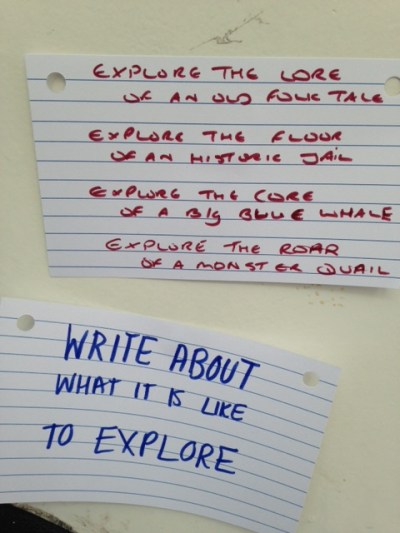 EXPLORE THE LORE
OF AN OLD FOLK TALE
EXPLORE THE FLOOR
OF AN HISTORIC JAIL
EXPLORE THE CORE
OF A BIg BLUE WHALE
EXPLORE THE ROAR
OF A MONSTER QUAIL
WRITE ABOUT
WHAT IT IS LIKE
TO EXPLORE